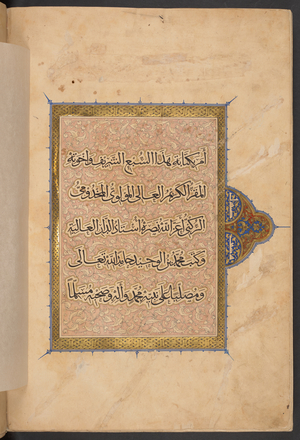 أمر بكتابة هذا السبع الشريف واخوته
المقر الكريم العالي المولوي المخدومي
الركني اعز الله نصره استاذ الدار العالية
وكتب محمد بن الوحيد حامدا لله تعالى
ومصليا على نبيه محمد وآله وصحبه مسلما